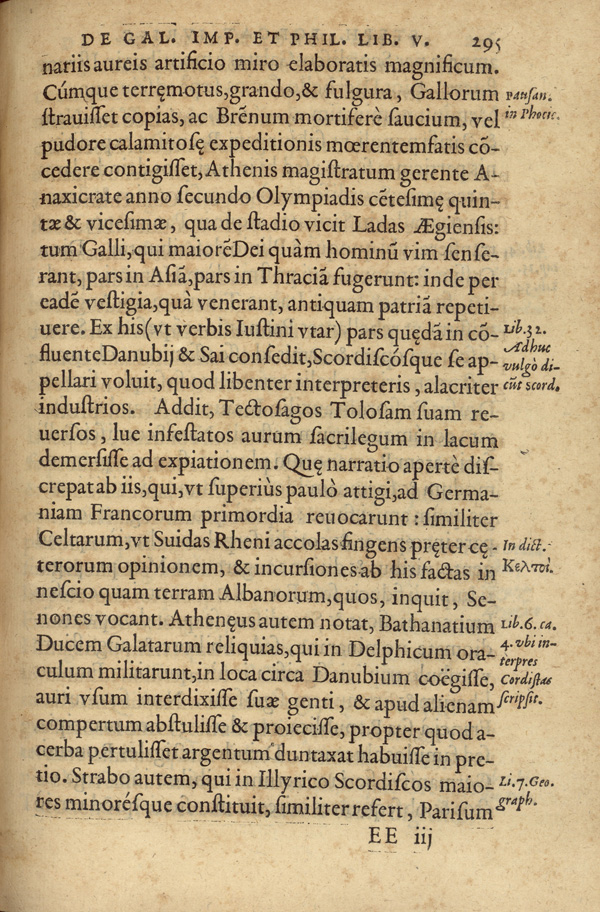 DE GAL. IMP. ET PHIL. LIB. V. 295
nariis aureis artificio miro elaboratis magnificum.
Cúmque terręmotus, grando, & fulgura, Gallorum
strauisset copias, ac Brēnum mortiferè saucium, vel
pudore calamitosę expeditionis mœrentem fatis cō-
cedere contigisset, Athenis magistratum gerente A-
naxicrate anno secundo Olympiadis cētesimę quin-
tæ & vicesimæ, qua de stadio vicit Ladas Ægiensis:
tum Galli, qui maiorē Dei quàm hominū vim sense-
rant, pars in Asiā, pars in Thraciā fugerunt: inde per
eadē vestigia, quà venerant, antiquam patriā repeti-
uere. Ex his (vt verbis Iustini vtar) pars quędā in cō-
fluente Danubij & Sai consedit, Scordiscósque se ap-
pellari voluit, quod libenter interpreteris, alacriter
industrios. Addit, Tectosagos Tolosam suam re-
uersos, lue infestatos aurum sacrilegum in lacum
demersisse ad expiationem. Quę narratio apertè dis-
crepat ab iis, qui, vt superiùs paulò attigi, ad Germa-
niam Francorum primordia reuocarunt: similiter
Celtarum, vt Suidas Rheni accolas fingens pręter cę-
terorum opinionem, & incursiones ab his factas in
nescio quam terram Albanorum, quos, inquit, Se-
nones vocant. Athenęus autem notat, Bathanatium
Ducem Galatarum reliquias, qui in Delphicum ora-
culum militarunt, in loca circa Danubium coëgisse,
auri vsum interdixisse suæ genti, & apud alienam
compertum abstulisse & proiecisse, propter quod a-
cerba pertulisset argentum duntaxat habuisse in pre-
tio. Strabo autem, qui in Illyrico Scordiscos maio-
res minorésque constituit, similiter refert, Parisum
EE iij
pausan.
in Phocic.
Lib. 32.
Adhuc
vulgò di-
cūt scord.
In dict.
Κελτοὶ.
Lib. 6. ca.
4. vbi in-
terpres
Cordistas
scripsit.
Li. 7. Geo.
graph.